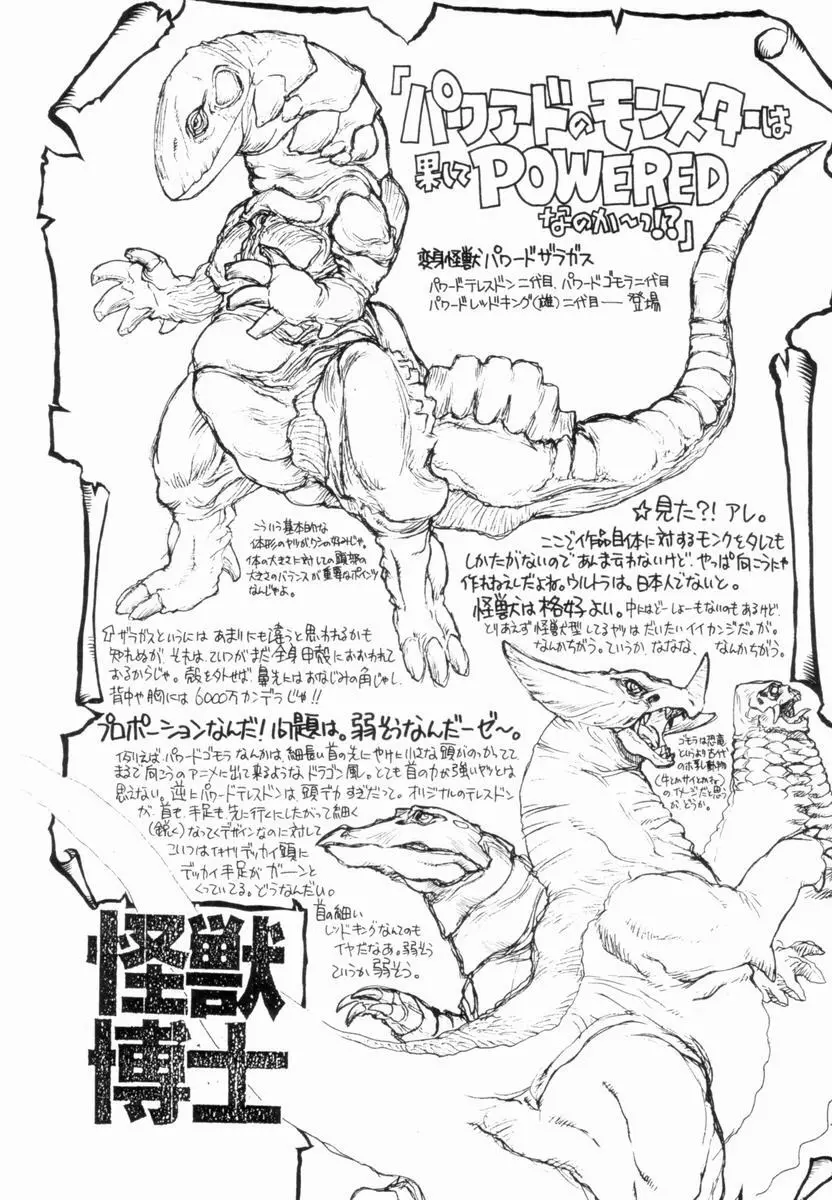 「パワアドのモンスターは
果して POWERED
なのか〜っ!?」
変身怪獣 パワードザラガス
パワードテレスドン二代目、パワードゴモラ二代目
パワードレッドキング(雄)二代目── 登場
☆見た?! アレ。
ここで作品自体に対するモンクをタレても
しかたがないのであんま言わないけど、やっぱ向こうにゃ
作れねえんだよね。ウルトラは。日本人でないと。
怪獣は格好よい。中にはどーしょーもないのもあるけど、
とりあえず怪獣型してるヤツはだいたいイイカンジだ。が。
なんかちがう。ていうか、ななな、なんかちがう。
こういう基本的な
体形のヤツがワシの好みじゃ。
体の大きさに対しての頭部の
大きさのバランスが重要なポインツ
なんじゃよ。
ザラガスというにはあまりにも違うと思われるかも
知れぬが、それは、こいつがまだ全身甲殻におおわれて
おるからじゃ。殻を外せば、鼻先にはおなじみの角じゃし、
背中や胸には6000万カンデラじゃ!!
プロポーションなんだ!問題は。弱そうなんだーゼ〜。
例えば、パワードゴモラなんかは、細長い首の先にやけに小さな頭がのっかてて
まるで向こうのアニメに出て来るようなドラゴン風。とても首の力が強いヤツとは
思えない。逆にパワードテレスドンは、頭デカすぎだって。オリジナルのテレスドン
が、首も、手足も、先に行くにしたがって細く
(鋭く)なってくデザインなのに対して
こいつはイキナリデッカイ頭に
デッカイ手足がガーンと
くっていてる。どうなんだい。
ゴモラは恐竜
というより古代
のホ乳動物
(牛とかサイとかね)
のイメージだと思う
が、どうか。
首の細い
レッドキングなんてのも
イヤだなあ。弱そう
ていうか 弱そう。
怪獣
博士